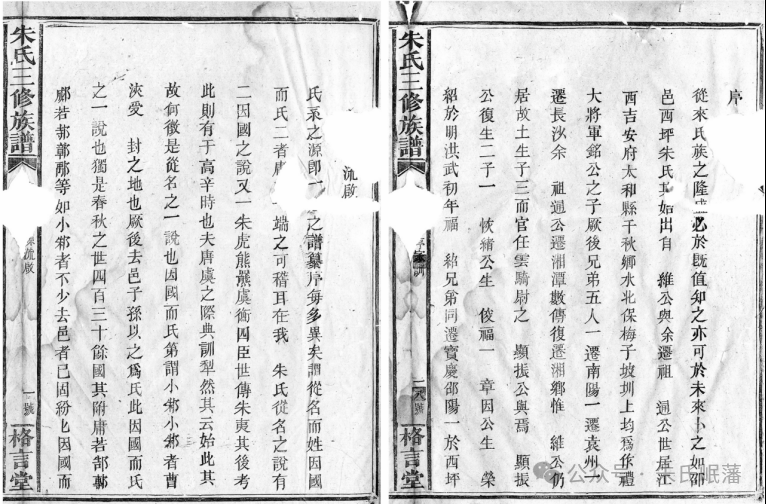 序
從來氏族之隆盛必於既值知之亦可於未來卜之如邵
邑西坪朱氏其始出自 維公與余遷祖 通公世居江
西吉安府太和縣千秋鄉水北保梅子坡圳上均爲依禮
大將軍銘公之子厥後兄弟五人一遷南陽一遷袁州一
遷長沙余 祖通公遷湘潭數傳復遷湘鄉惟 維公仍
居故土生子三而官任雲騎尉之 顯振公與焉 顯振
公復生二子一 恢緒公生 俊福一 章因公生 榮
紹於明洪武初年福 紹兄弟同遷寶慶邵陽一於西坪
朱氏三修族譜
二八號
格言堂
流啟
氏系之源卽一 之譜纂序每多異矣謂從名而姓因國
而氏二者 端之可稽且在我 朱氏從名之說有
二因國之說又一朱虎熊羆虞衡四臣世傳朱東其後考
此則有于高辛時也夫唐虞之際典訓犁然其云始此其
故何徵是從名之一說也因國而氏第謂小邾小邾者曹
浹爰 封之地也厥後去邑子孫以之爲氏此因國而氏
之一說也獨是春秋之世四百三十餘國其附庸若郜鄣
等如小邾者不少去邑者已固紛匕因國而
朱氏三修族譜
流啟
一號
格言堂
公众号 氏眠藩